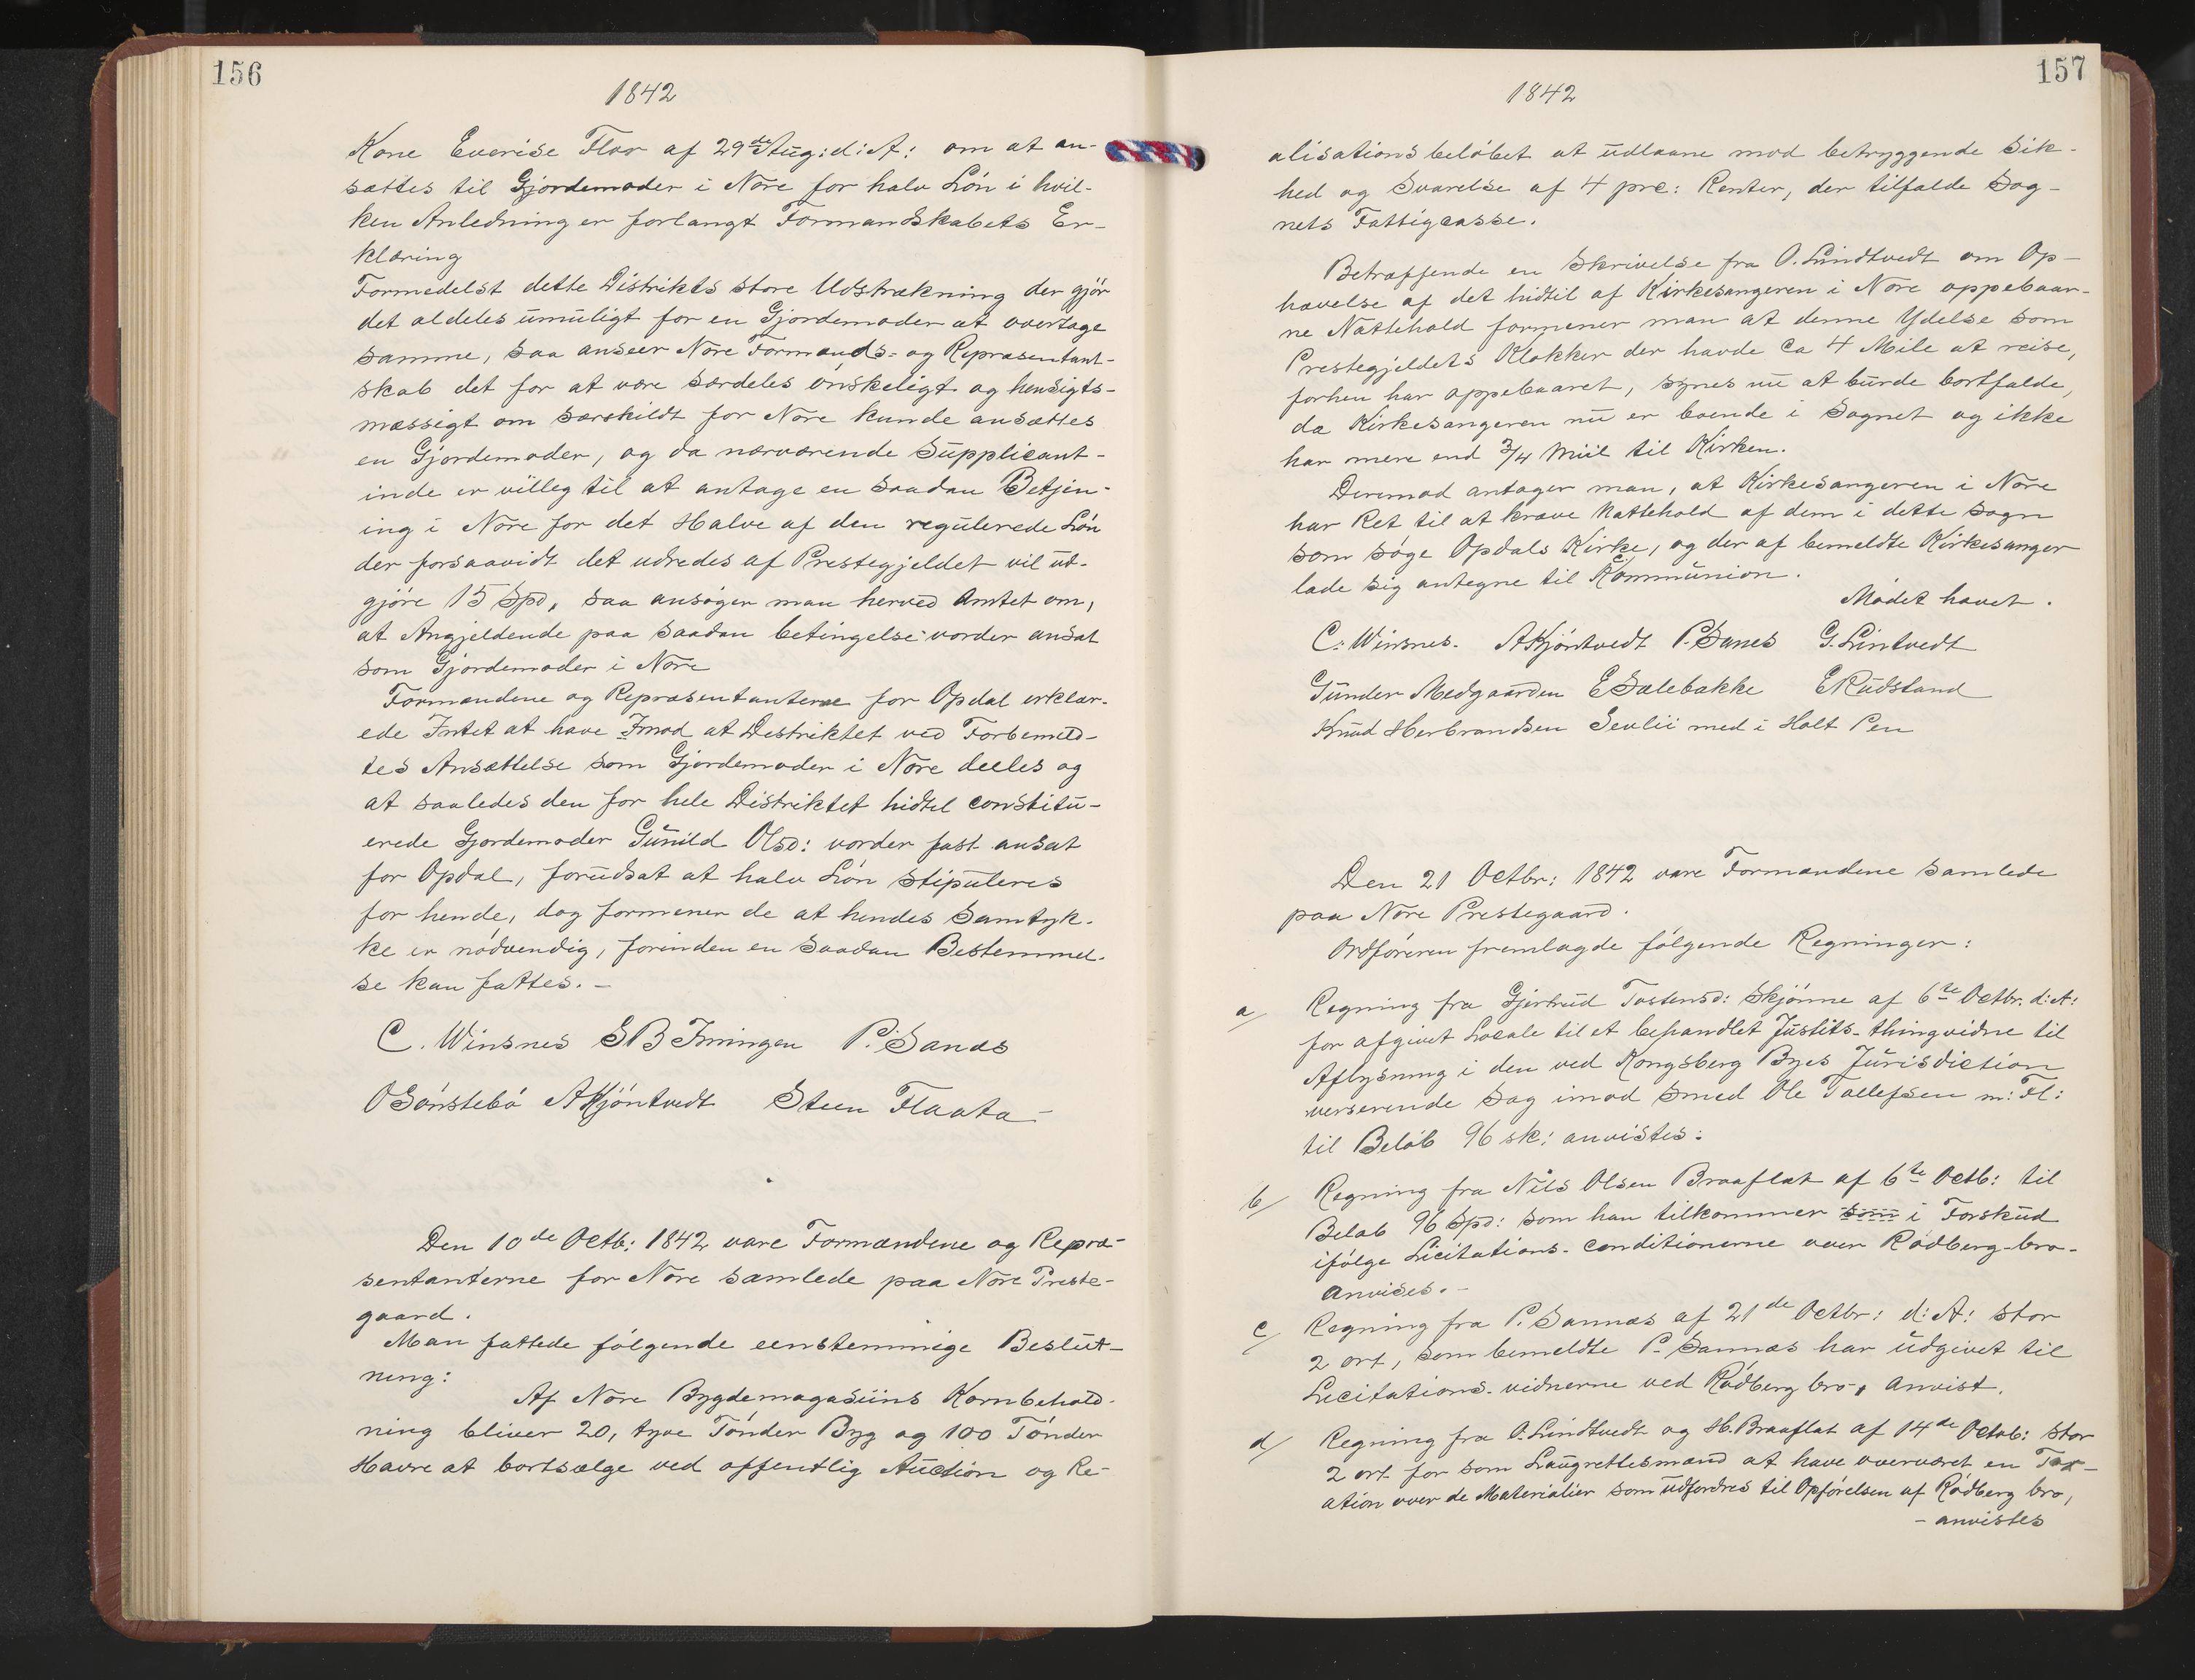 156
1842
Kone Everise Flor af 29de Aug: d: A: om at an-
sættes til Gjordemoder i Nore for halv Løn i hvil-
ken Anledning er forlangt Formandskabets Er-
klæring
Formedelst dette Distrikts store Udstrækning der gjør
det aldeles umuligt for en Gjordemoder at overtage
samme, saa anseer Nore Formands- og Repræsentant-
skab det for at være særdeles ønskeligt og hensigts-
mæssigt om særskildt for Nore kunde ansættes
en Gjordemoder, og da nærværende Supplicant-
inde er villeg til at antage en saadan Betjen-
ing i Nore for det Halve af den regulerede Løn
der forsaavidt det udredes af Prestegjeldet vil ud-
gjøre 15 Spd, saa ansøger man herved Amtet om,
at Angjeldende paa saadan betingelse vorder ansat
som Gjordemoder i Nore
Formændene og Repræsentanterne for Opdal erklær-
ede Intet at have Imod at Destriktet ved Forbemeld-
tes Ansættelse som Gjordemoder i Nore deeles og
at saaledes den for hele Distriktet hidtel constitu-
erede Gjordemoder Gunild Olsd: vorder fast ansat
for Opdal, forudsat at halv Løn stipuleres
for hende, dog formener de at hendes Samtyk-
ke er nødvendig, forinden en saadan Bestemmel-
se kan fattes. -
C. Winsnes EB Imingen P. Sanæs
O Sønstebø A Kjøntvedt Steen Flaata
Den 10de Octb: 1842 vare Formændene og Repræ-
sentanterne for Nore samlede paa Nore Preste-
gaard.
Man fattede følgende eenstemmige Beslut-
ning:
Af Nore Bygdemagasiins Kornbehold-
ning bliver 20, tyve Tønder Byg og 100 Tønder
Havre at bortsælge ved offentlig Auction og Re-
157
1842
alisationsbeløbet at udlaane mod betryggende Sik-
hed og Svarelse af 4 prc: Renter, der tilfalde Sog-
nets Fattigcasse.
Betræffende en Skrivelse fra O. Lundtvedt om Op-
hævelse af det hidtil af Kirkesangeren i Nore oppebaar-
ne Nattehold formener man at denne Ydelse som
Prestegjeldets Klokker der havde ca 4 Mile at reise,
forhen har oppebaaret, synes nu at burde bortfalde,
da Kirkesangeren nu er boende i Sognet og ikke
har mere end 3/4 Miil til Kirken.
Deremod antager man, at Kirkesangeren i Nore
har Ret til at kræve Nattehold af dem i dette Sogn
som søge Opdals Kirke, og der af bemeldte Kirkesanger
lade sig antegne til Kommunion.
Mødet hævet.
C. Winsnes. A Kjøntvedt P. Sanes G. Lintvedt
Gunder Medgaarden E Sælebakke E Rudstand
Knud Herbrandsen Sevlii med i Holt Pen
Den 21 Octbr: 1842 vare Formændene samlede
paa Nore Prestegaard.
Ordføreren fremlagde følgende Regninger:
a/ Regning fra Gjertrud Tostensd: Skjønne af 6te Octbr. d: A:
for afgivet Locale til et behandlet Justits-thingvidne til
Aflysning i den ved Kongsberg Byes Jurisdiction
verserende Sag imod Smed Ole Tollefsen m: Fl:
til Beløb 96 sk: anvistes:
b/ Regning fra Nils Olsen Braaflat af 6te Octb: til
Beløb 96 Spd: som han tilkommer som i Forskud
ifølge Licitations-conditionerne over Rødberg-bro-
Anvises. -
c/ Regning fra P. Sannæs af 21de Octbr: d: A: stor
2 ort, som bemeldte P. Sannæs har udgivet til
Licitations-vidnerne ved Rødberg bro, Anvist.
d/ Regning fra O. Lundtvedt og H. Braaflat af 14de Octob: stor
2 ort for som Laugrettesmænd at have overværet en Tax-
ation over de Materialier som udfordres til Opførelsen af Rødberg bro,
- anvistes